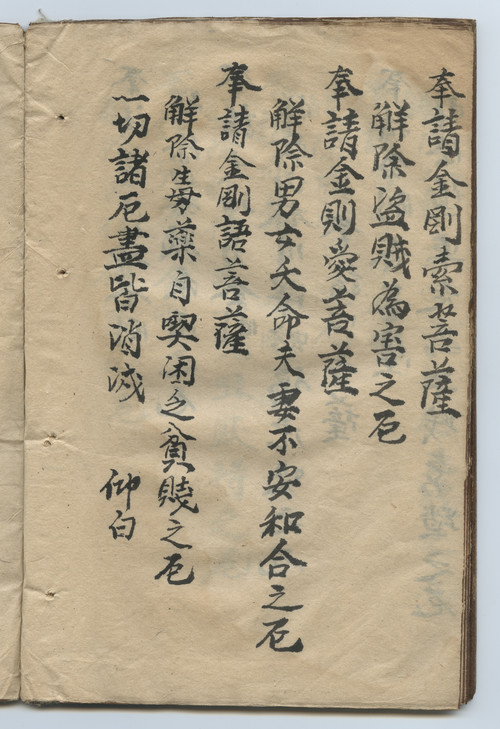 奉請金剛索菩薩
解除盜賊為害之厄
奉請金則愛菩薩
解除男女夭命夫妻不安和合之厄
奉請金剛語菩薩
解除毒藥自契困乏貧賤之厄
一切諸厄盡皆消滅
仰白